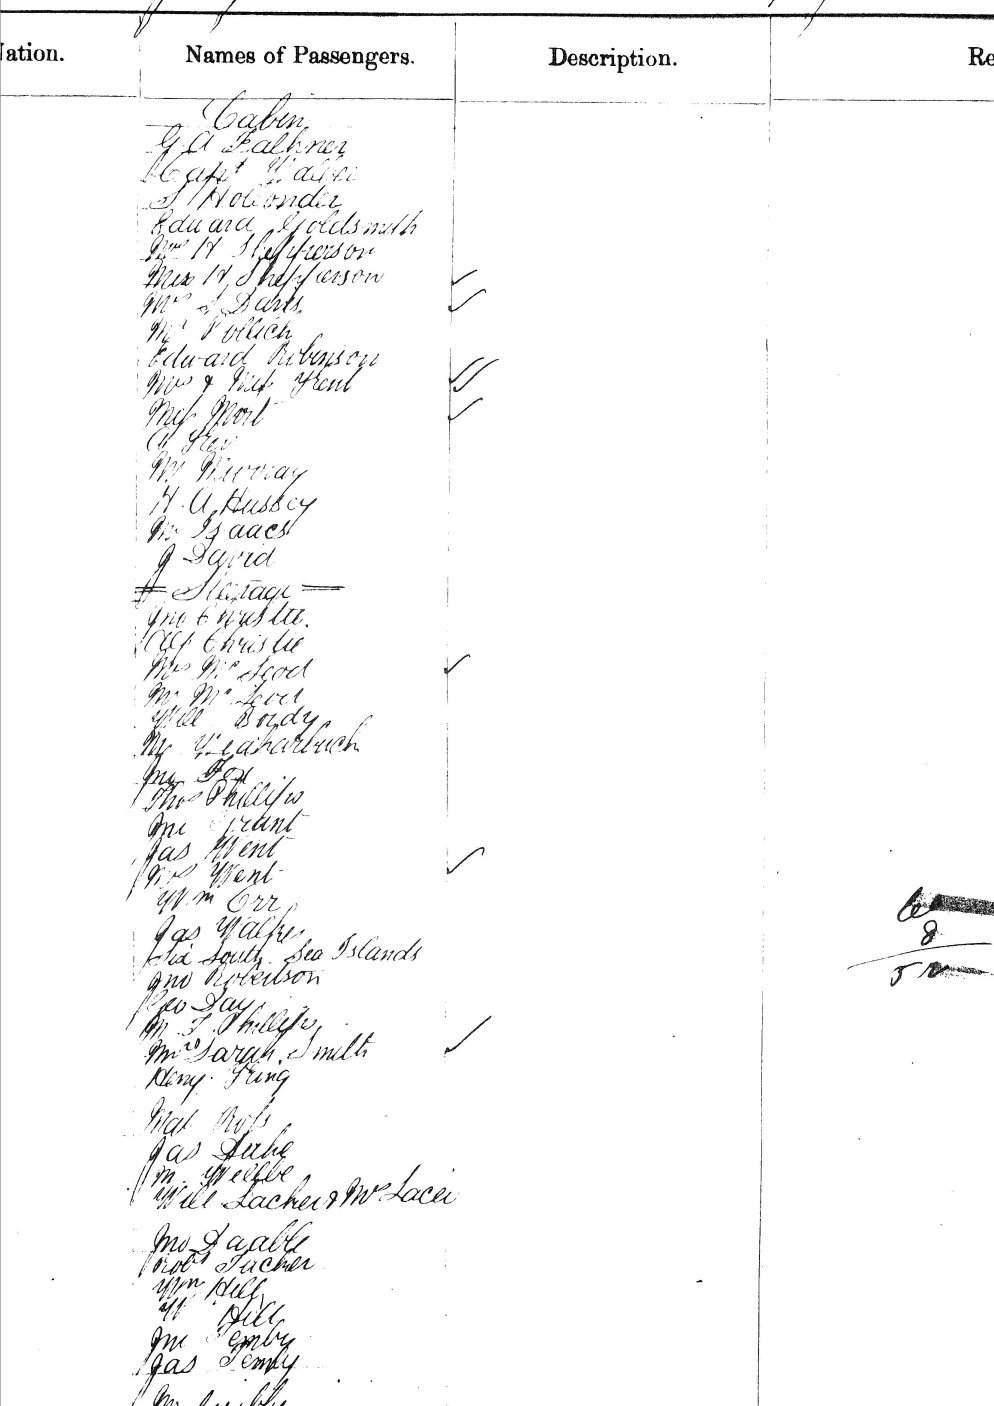 Nation. Names of Passengers. Description. Re
Cabin
G A Falkner
Capt
S Hollonder
Edward Goldsmith
Mrs H Shepperson
Miss H Shepperson
Mrs S Davis
Mr Pollick
Edward Robinson
Mrs & Miss Kent
Miss Mort
A
Mr Murray
H. A. Hussey
Mr Isaacs
J David
Steerage
Jno Christie.
Alf Christie
Mrs McLeod
Mr McLeod
Will Bordy
Mr
Mr Fox
Thos Phillips
Mr Grant
Jas Went
Mrs Went
Wm Orr
Jas Walker
Six South Sea Islands
Jno Robertson
Geo Day
M F. Phillips
Mrs Sarah Smith
Heny. Fring
Mat Robs
Jas Duke
M.
Will Lacher & Mrs Lacer
Jno Daable
Robt Tucker
Wm Hill
W Hill
Jno Temby
Jas Temby
8
5